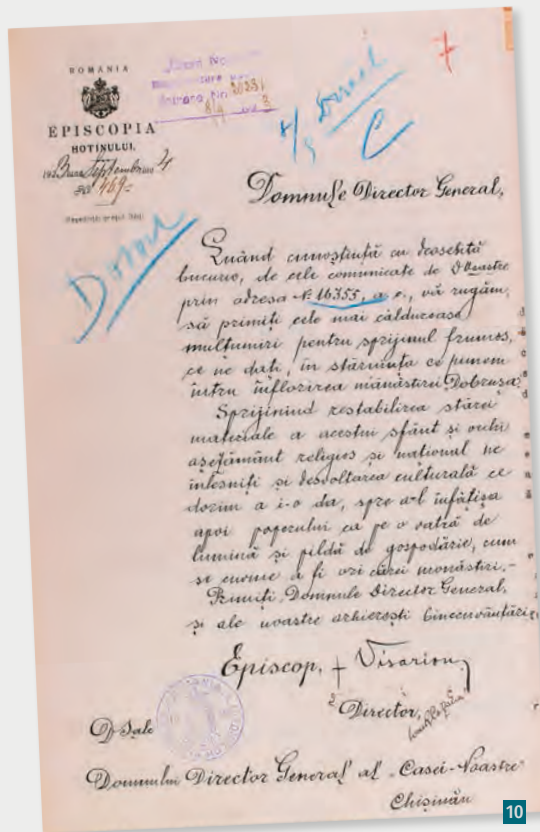 ROMANIA
EPISCOPIA
HOTINULUI.
192 3 luna Septembrie 4
No 469=
7
Dosar
C
Dosar
Domnule Director General,
Luând cunoștință cu deosebită
bucurie, de cele comunicate de D Voastre
prin adresa № 16355, a. c., vă rugăm,
să primiți cele mai călduroase
mulțumiri pentru sprijinul frumos,
ce ne dați, în stăruința ce punem
întru înflorirea mănăstirei Dobrușa.
Sprijinind restabilirea stărei
materiale a acestui sfânt și vechi
așezământ religios și național ne
înlesniți și desvoltarea culturală ce
dorim a i-o da, spre a-l înfățișa
apoi poporului ca pe o vatră de
lumină și pildă de gospodărie, cum
se cuvine a fi ori cărei monăstiri,-
Primiți, Domnule Director General,
și ale noastre arhierești binecuvântări,
Episcop, + Visarion
Director,
D Sale
Domnului Director General al „Casei-Noastre"
Chișinău
10